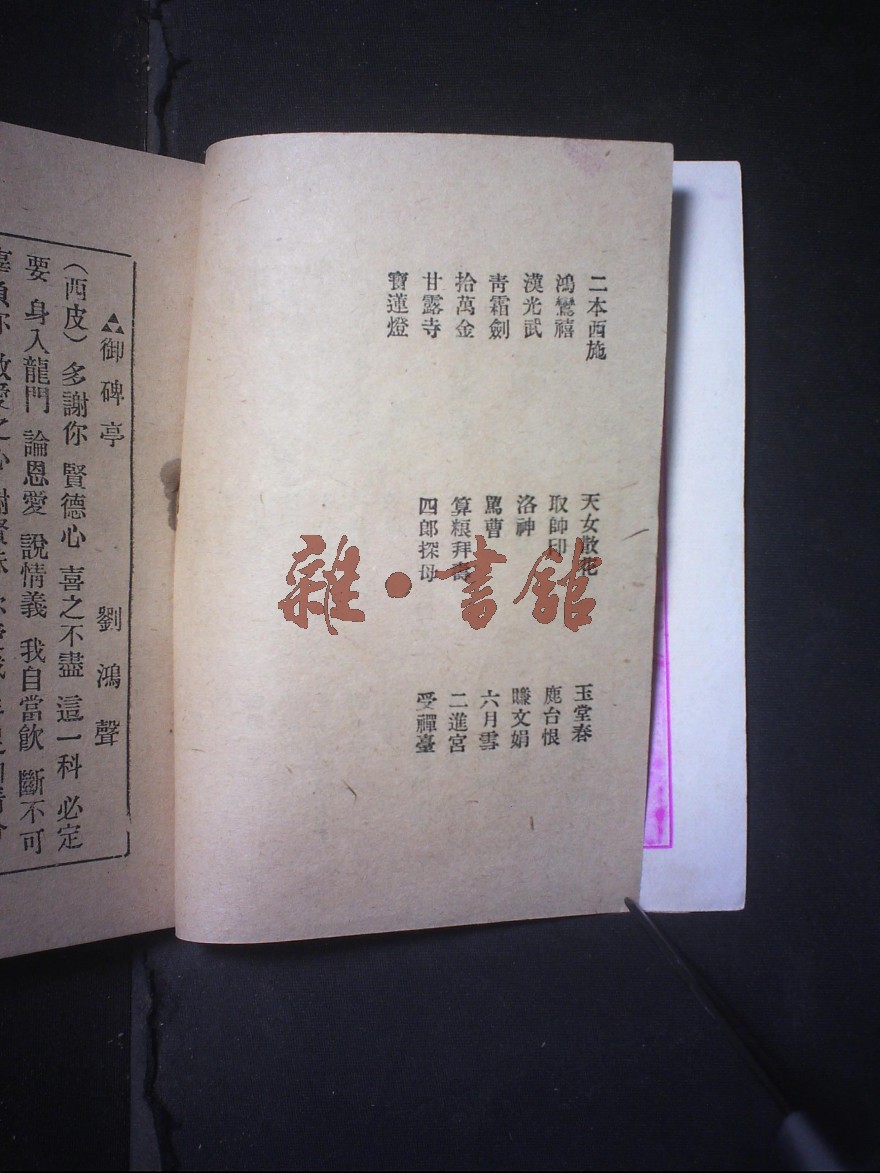 二本西施
鴻鸞禧
漢光武
青霜劍
拾萬金
甘露寺
寶蓮燈
天女散花
取帥印
洛神
罵曹
算粮拜壽
四郎探母
玉堂春
鹿台恨
賺文娟
六月雪
二進宮
受禪臺
雜·書館
御碑亭 劉鴻聲
（西皮）多謝你 賢德心 喜之不盡 這一科 必定
要 身入龍門 論恩愛 說情義 我自當飲 斷不可